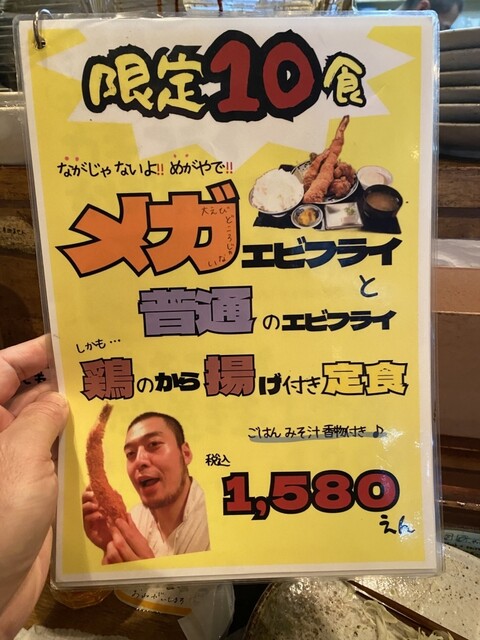 限定10食
ながじゃないよ!! めがやで!!
メガエビフライ
大えび
どころじゃ
ない
と
普通のエビフライ
しかも…
鶏のから揚げ付き定食
ごはん みそ汁 香物付き♪
税込
1,580
えん